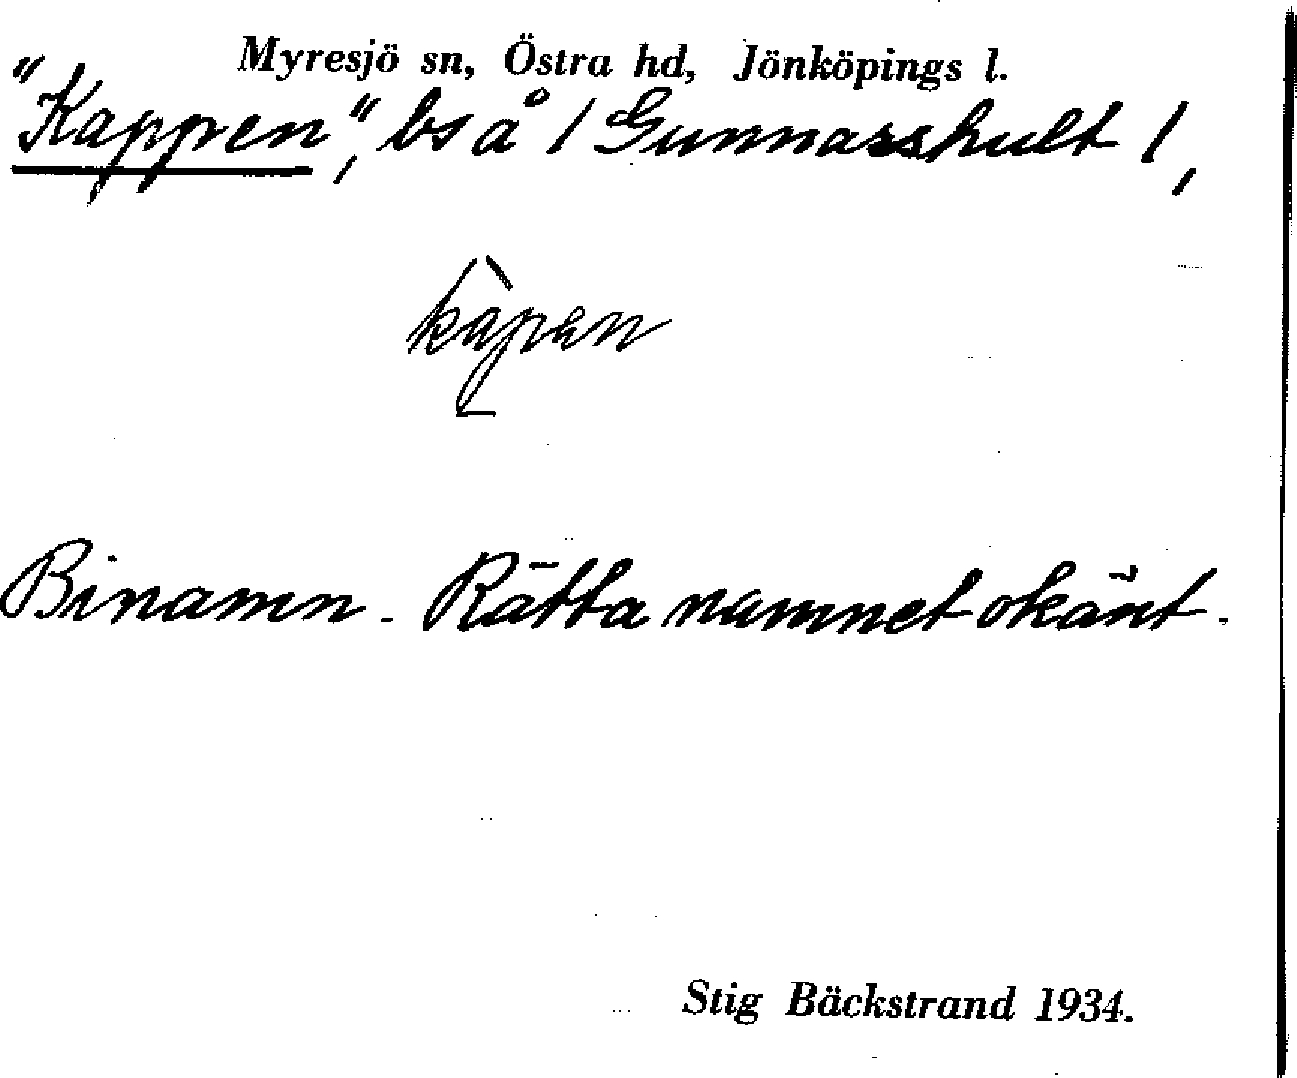 Myresjö sn, Östra hd, Jönköpings l.
"Kappen", bs å / Gunnarshult /,
kàpen
Binamn. Rätta namnet okänt.
Stig Bäckstrand 1934.